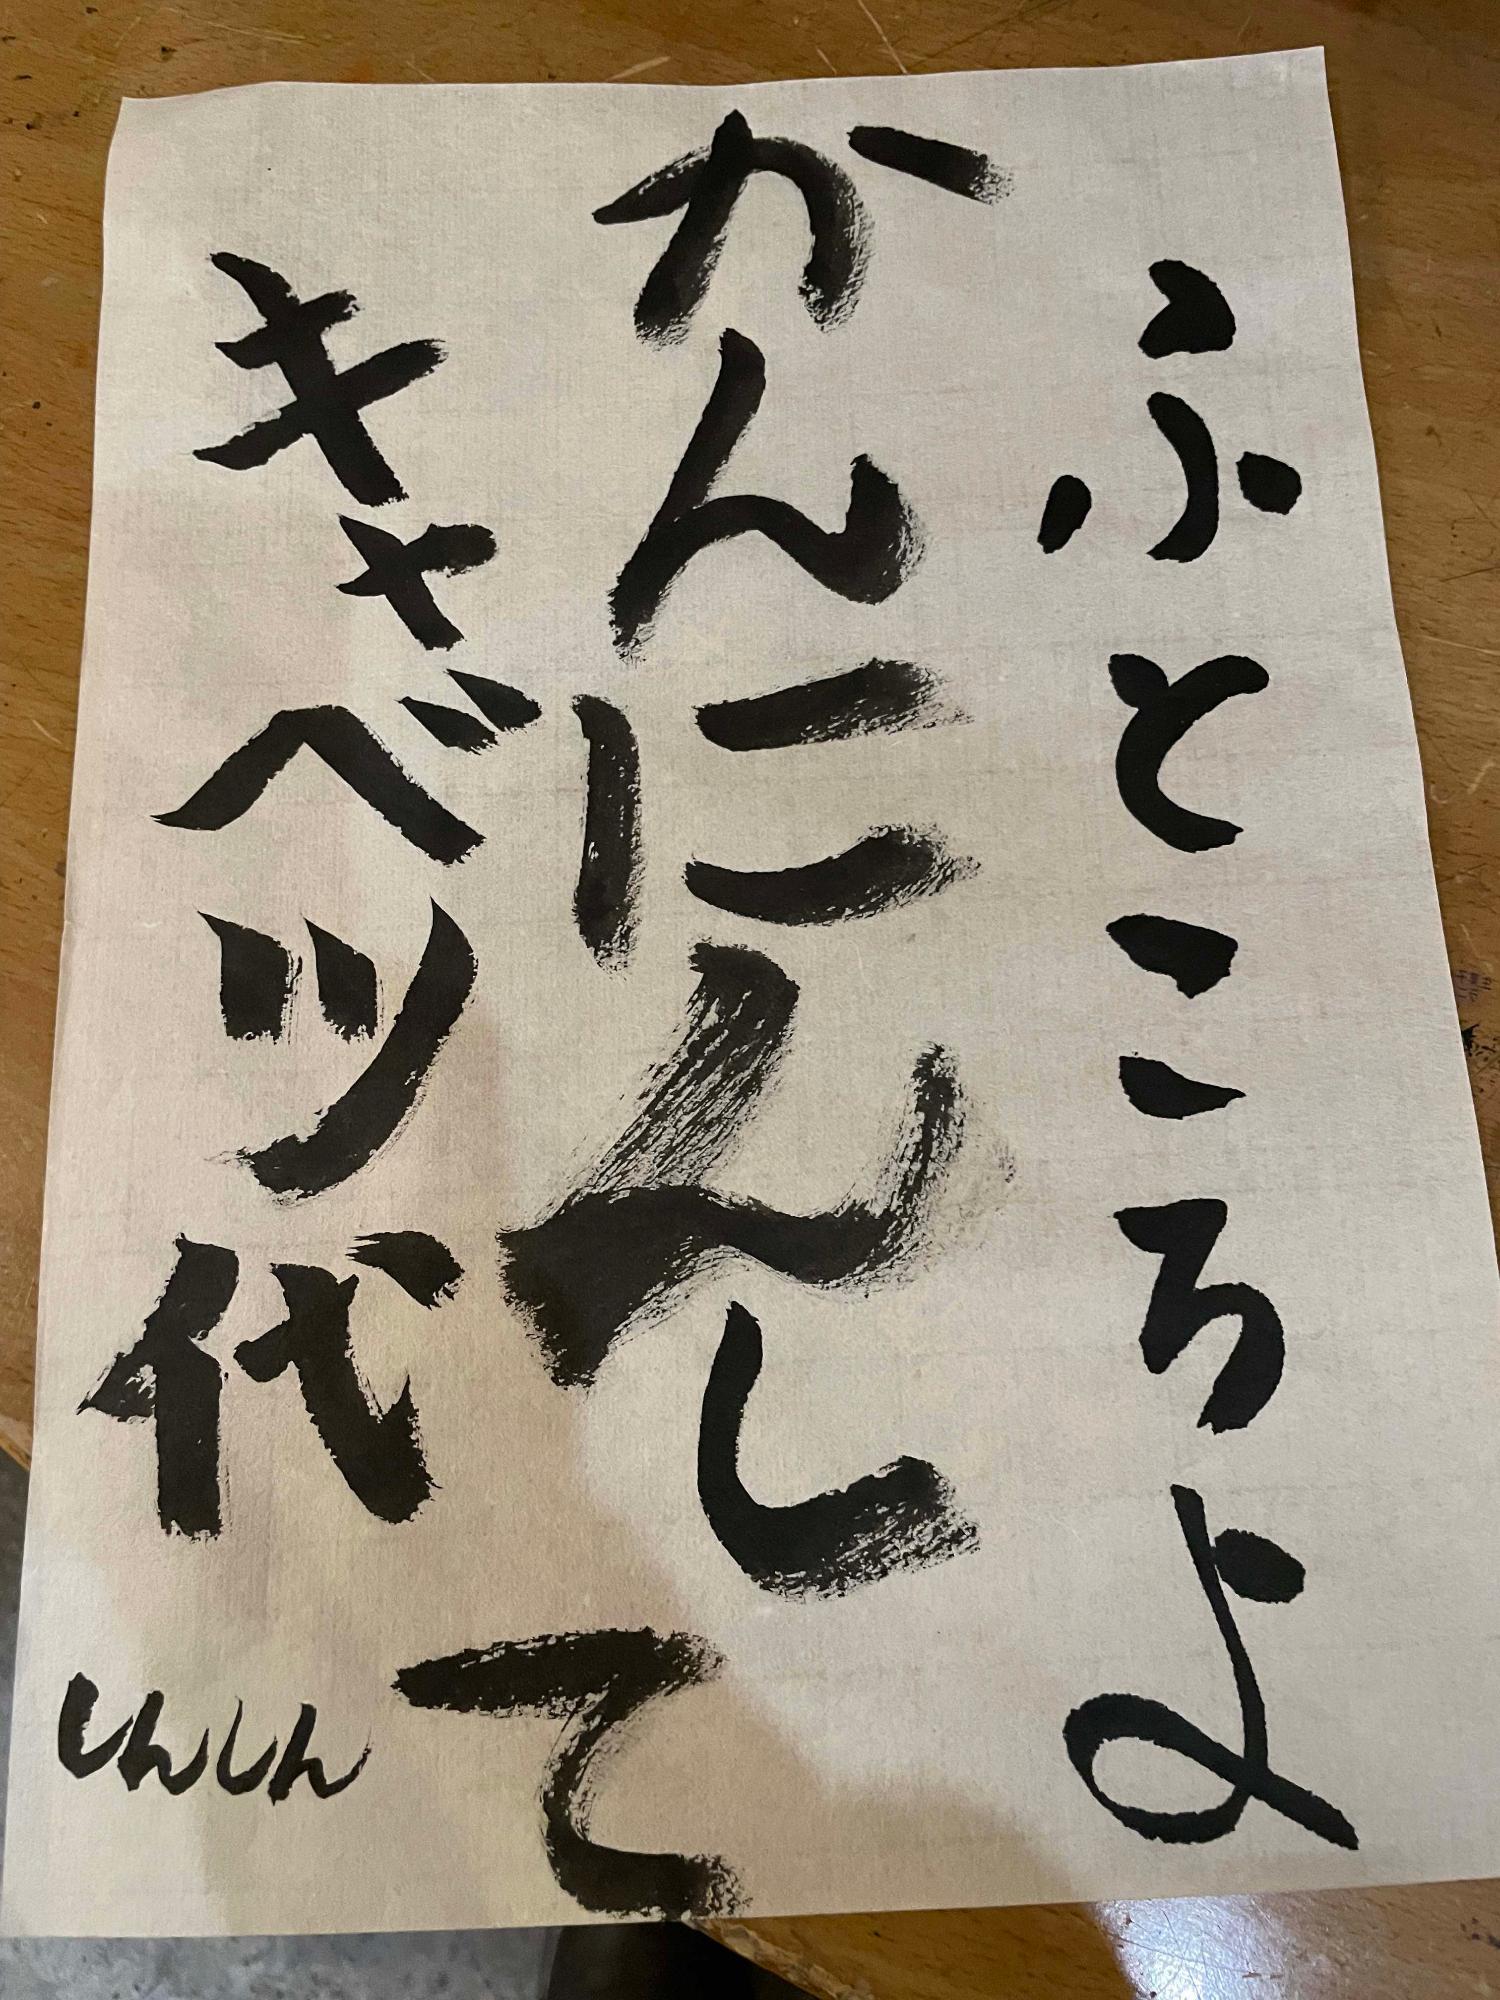 ふところよ
かんにんして
キャベツ代
しんしん